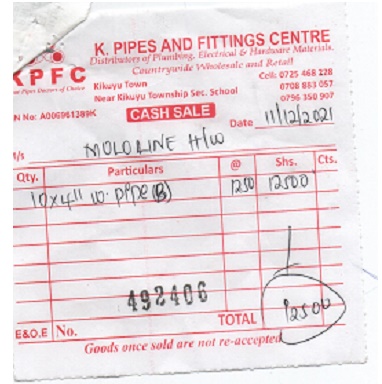 K. PIPES AND FITTINGS CENTRE
Distributors of Plumbing, Electrical & Hardware Materials.
Countrywide Wholesale and Retail
KPFC
Kikuyu Town
Near Kikuyu Township Sec. School
Cell: 0725 468 228
0708 883 057
0796 350 907
CASH SALE
Date 11/12/2021
MOLOLINE H/W
Qty. Particulars @ Shs. Cts.
10x4" w. pipe (B) 1250 12500
492406
TOTAL 12500
E&O.E No.
Goods once sold are not re-accepted